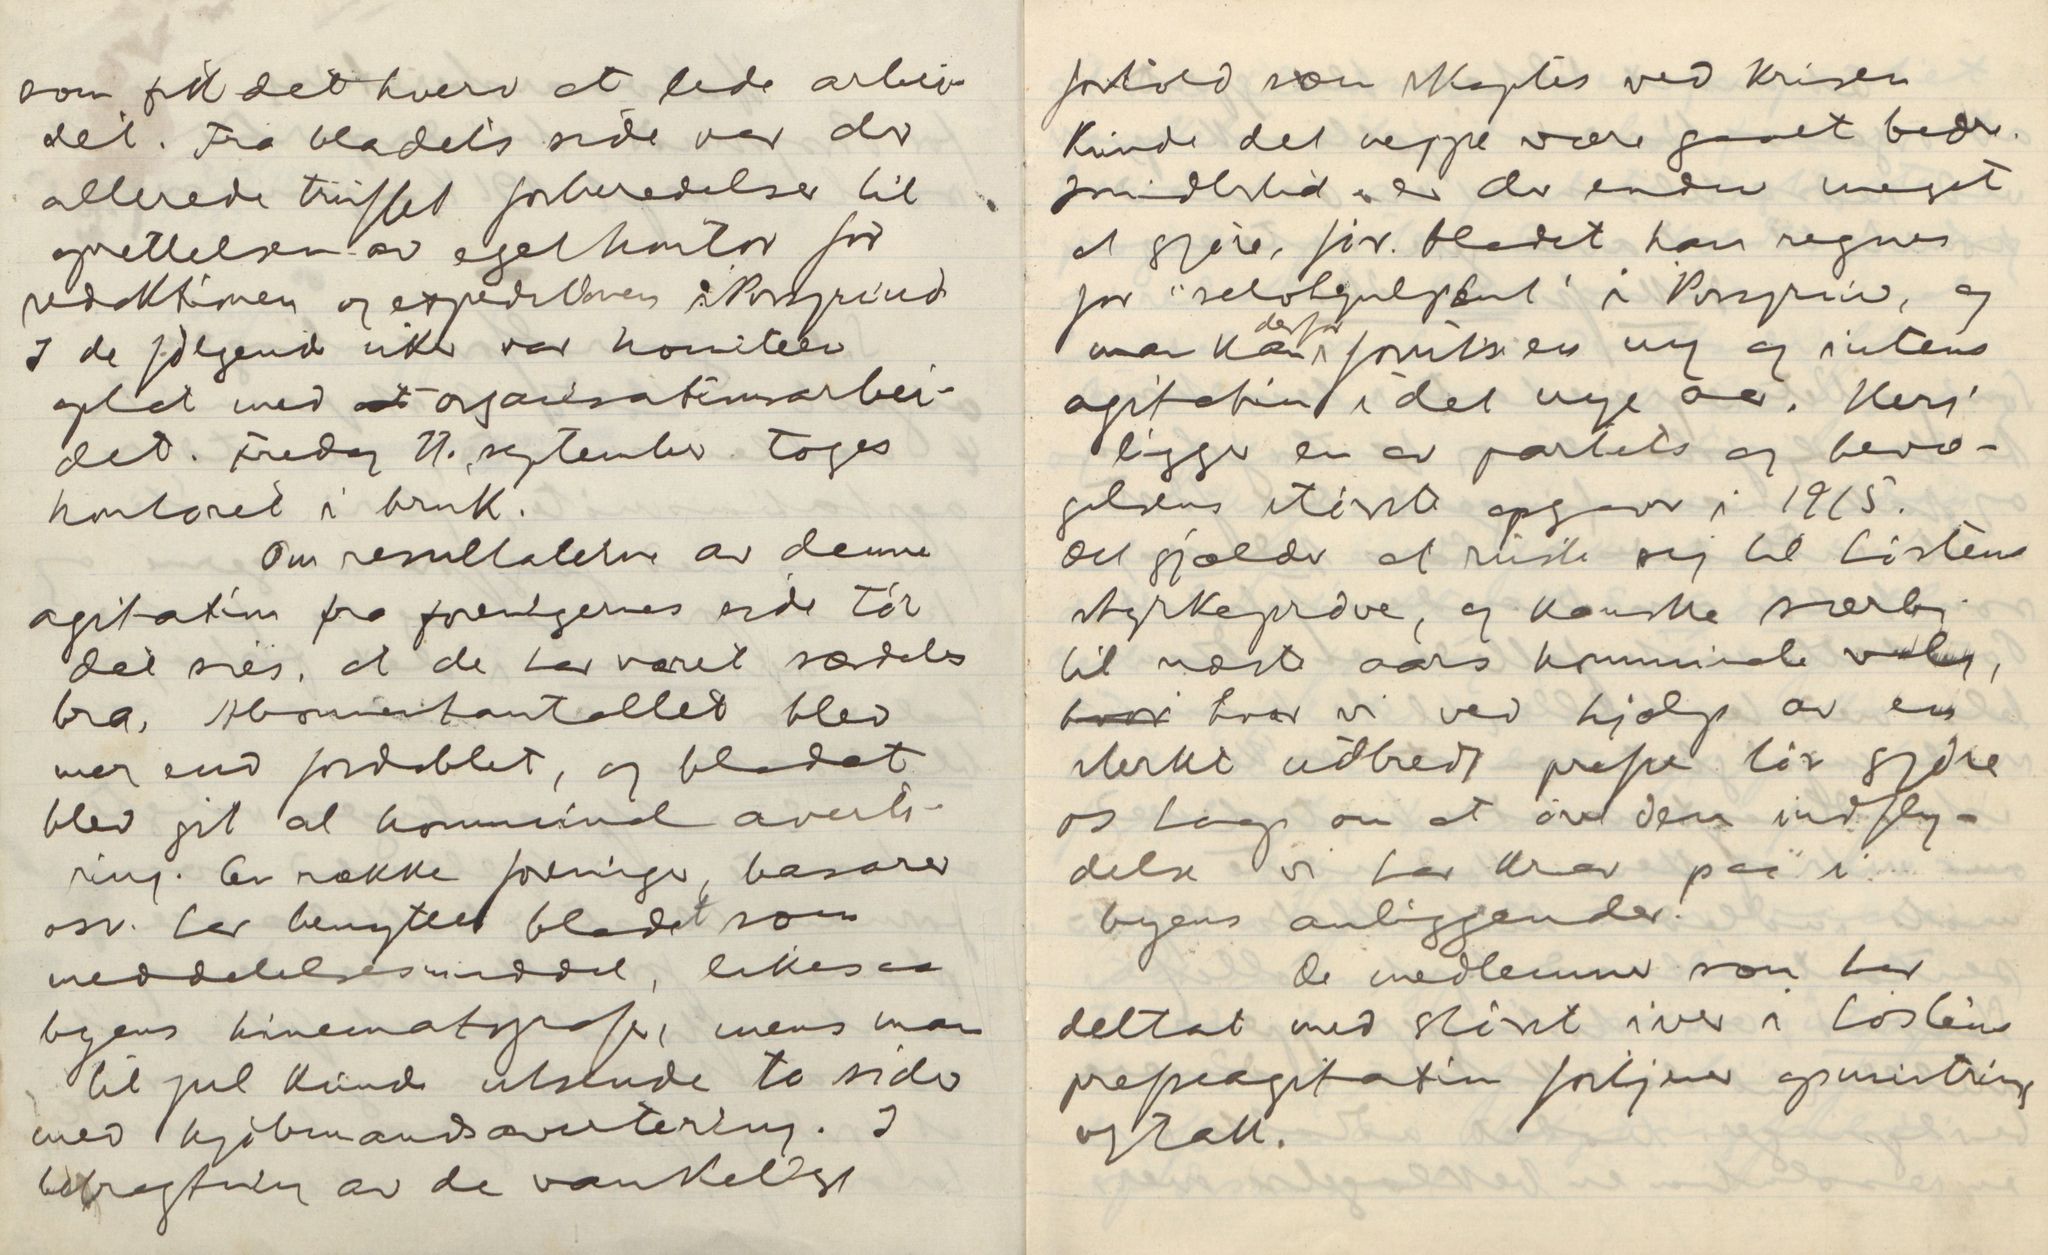 som fik det hverv at lede arbei-
det. Fra bladets side var der
allerede truffet forberedelser til
oprettelsen av eget kontor for
redaktionen og expeditionen i Porsgrund
I de følgende uker var komiteen
optat med organisationsarbei-
det. Fredag 11. september toges
kontoret i bruk.
Om resultaterne av denne
agitation fra foreningernes side tør
det sies, at de har været særdeles
bra. Abonnentantallet blev
mer end fordoblet, og bladet
blev git al kommunal averte-
ring. En række foreninger, basarer
osv. har benyttet bladet som
meddelelsesmiddel, likesaa
byens kinematografer, mens man
til jul kunde utsende to sider
med kjøbmandsavertering. I
betragtning av de vankelige
forhold som skaptes ved krisen
kunde det neppe være gaaet bedre.
Imidlertid er der endnu meget
at gjøre, før bladet kan regnes
for "selvhjulpent" i Porsgrund, og
man kan derfor forutse en ny og intens
agitation i det nye aar. Heri
ligger en av partiets og bevæ-
gelsens største opgaver i 1915.
Det gjælder at ruste sig til høstens
styrkeprøve, og kanske særlig
til næste aars kommunale valg,
hvor vi ved hjælp av en
sterkt utbredt presse tør gjøre
os haap om at øve den indfly-
delse vi har krav paa i
byens anliggender.
De medlemmer som har
deltat med størst iver i høstens
presseagitation fortjener opmuntring
og tak.